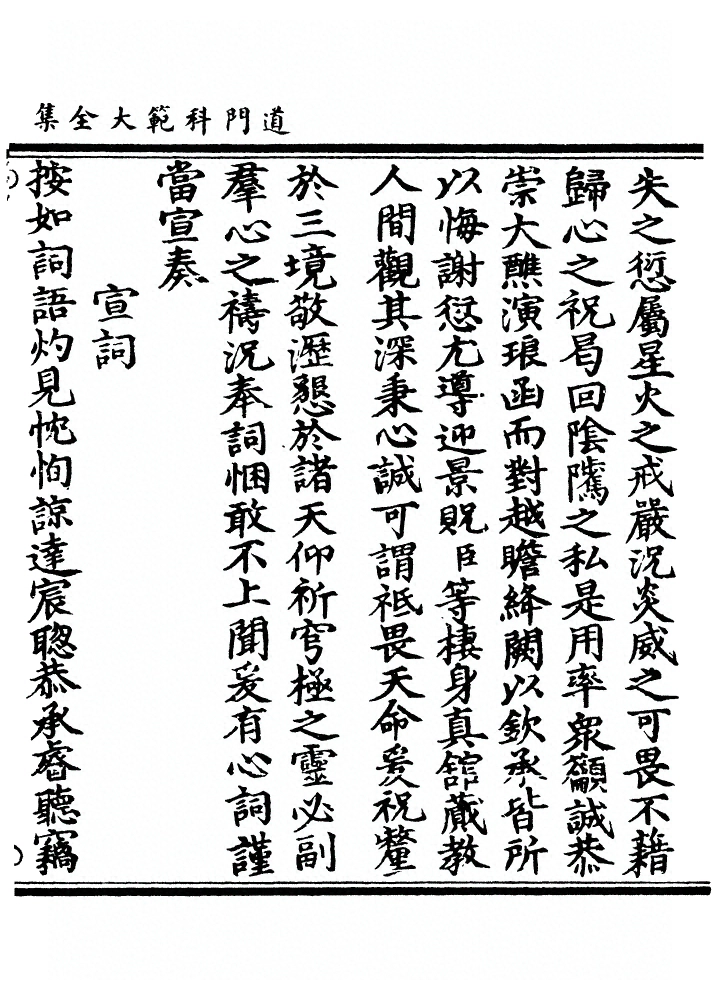 道門科範大全集
失之愆屬星火之戒嚴況炎威之可畏不藉
歸心之祝曷回陰隲之私是用率衆籲誠恭
崇大醮演琅函而對越瞻絳闕以欽承皆所
以悔謝愆尤導迎景貺臣等棲身真舘蕆教
人間觀其深秉心誠可謂祗畏天命爰祝釐
於三境敬瀝懇於諸天仰祈穹極之靈必副
羣心之禱況奉詞悃敢不上聞爰有心詞謹
當宣奏
宣詞
按如詞語灼見忱恂諒達宸聦恭承睿聽竊